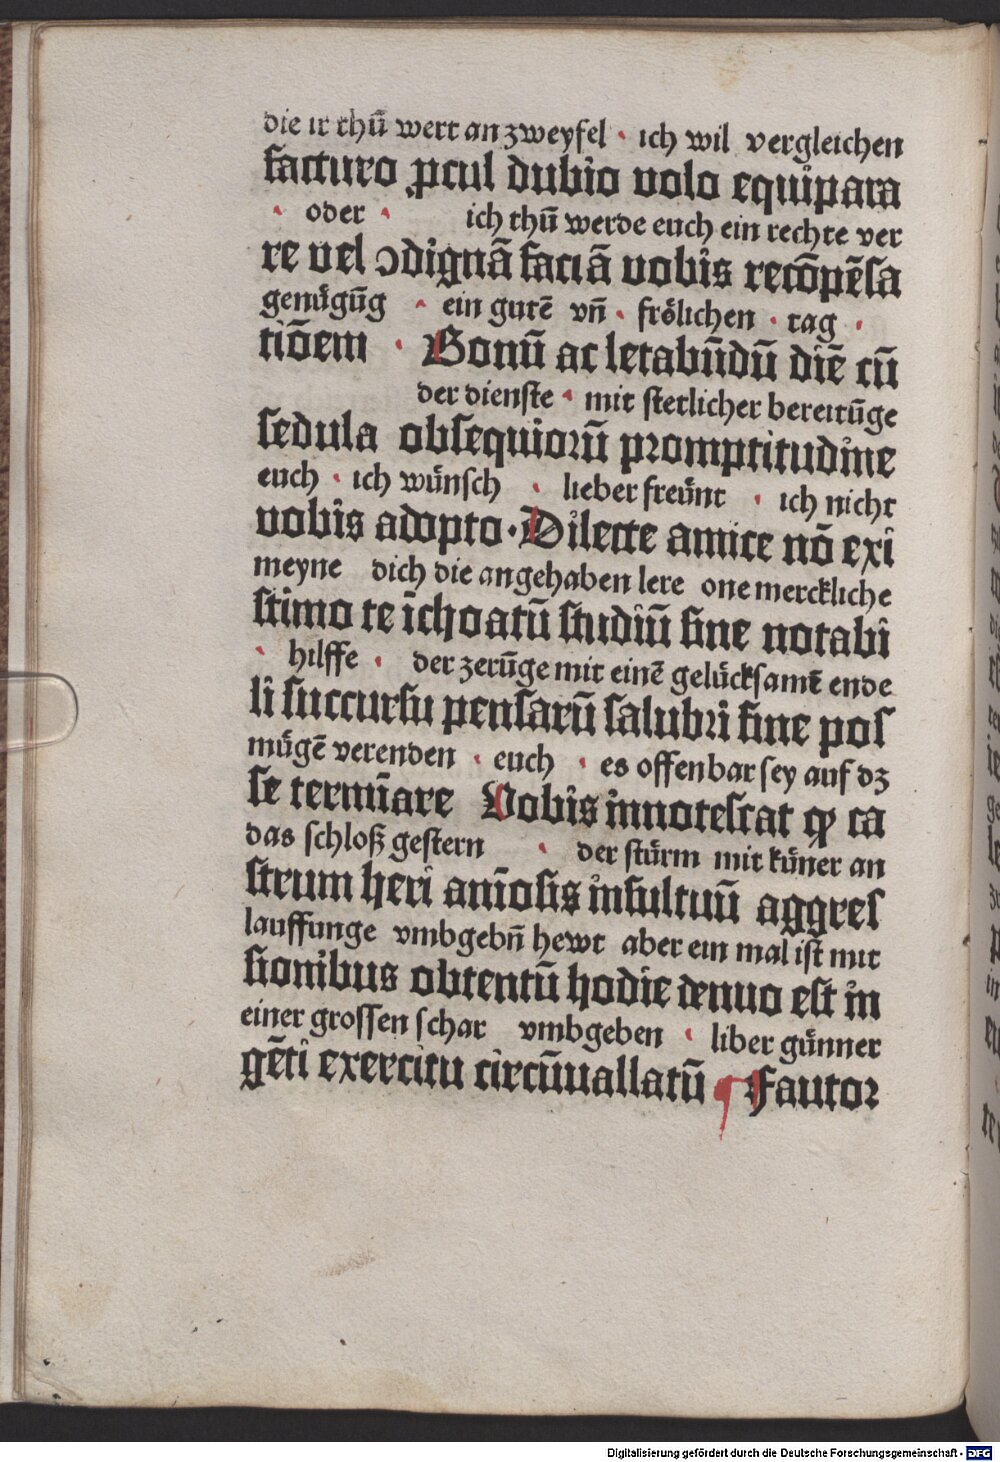 die ir thū wert an zweyfel · ich wil vergleichen
facturo ꝓcul dubio volo equipara
· oder · ich thū werde euch ein rechte ver
re vel ↄdignā faciā vobis recōpēsa
genůgūg · ein gutē vñ · frőlichen · tag ·
tiōem · Bonū ac letabūdū diē cū
der dienste · mit stetlicher bereitūge
sedula obsequioꝝū promptitudine
euch · ich wünsch · lieber freünt · ich nicht
vobis adopto · Dilecte amice nō exi
meyne dich die angehaben lere one merckliche
stimo te īchoatū studiū sine notabi
· hilffe · der zerūge mit einē gelücksamē ende
li succursu pensarū salubri fine pos
mügē verenden · euch · es offenbar sey auf dz
se termīare Vobis innotescat ꝙ ca
das schloß gestern · der stürm mit küner an
strum heri anīosis insultuū aggres
lauffunge vmbgebñ hewt aber ein mal ist mit
sionibus obtentū hodie denuo est in
einer grossen schar vmbgeben · liber günner
gēti exercitu circūuallatū ¶ Fautor
Digitalisierung gefördert durch die Deutsche Forschungsgemeinschaft - DFG